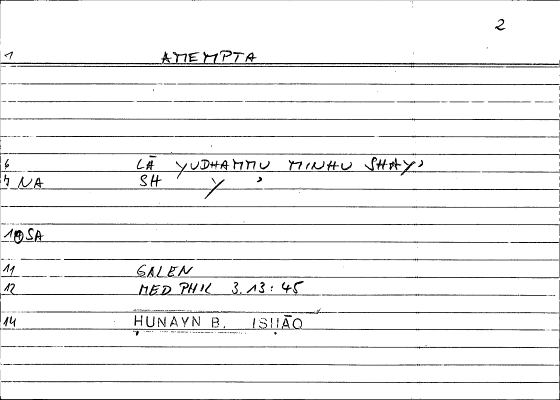 2
1 AMEMPTA
6 LĀ YUDHAMMU MINHU SHAY'
7 NA SH Y '
10 SA
11 GALEN
12 MED PHIL 3.13:45
14 ḤUNAYN B. ISḤĀQ